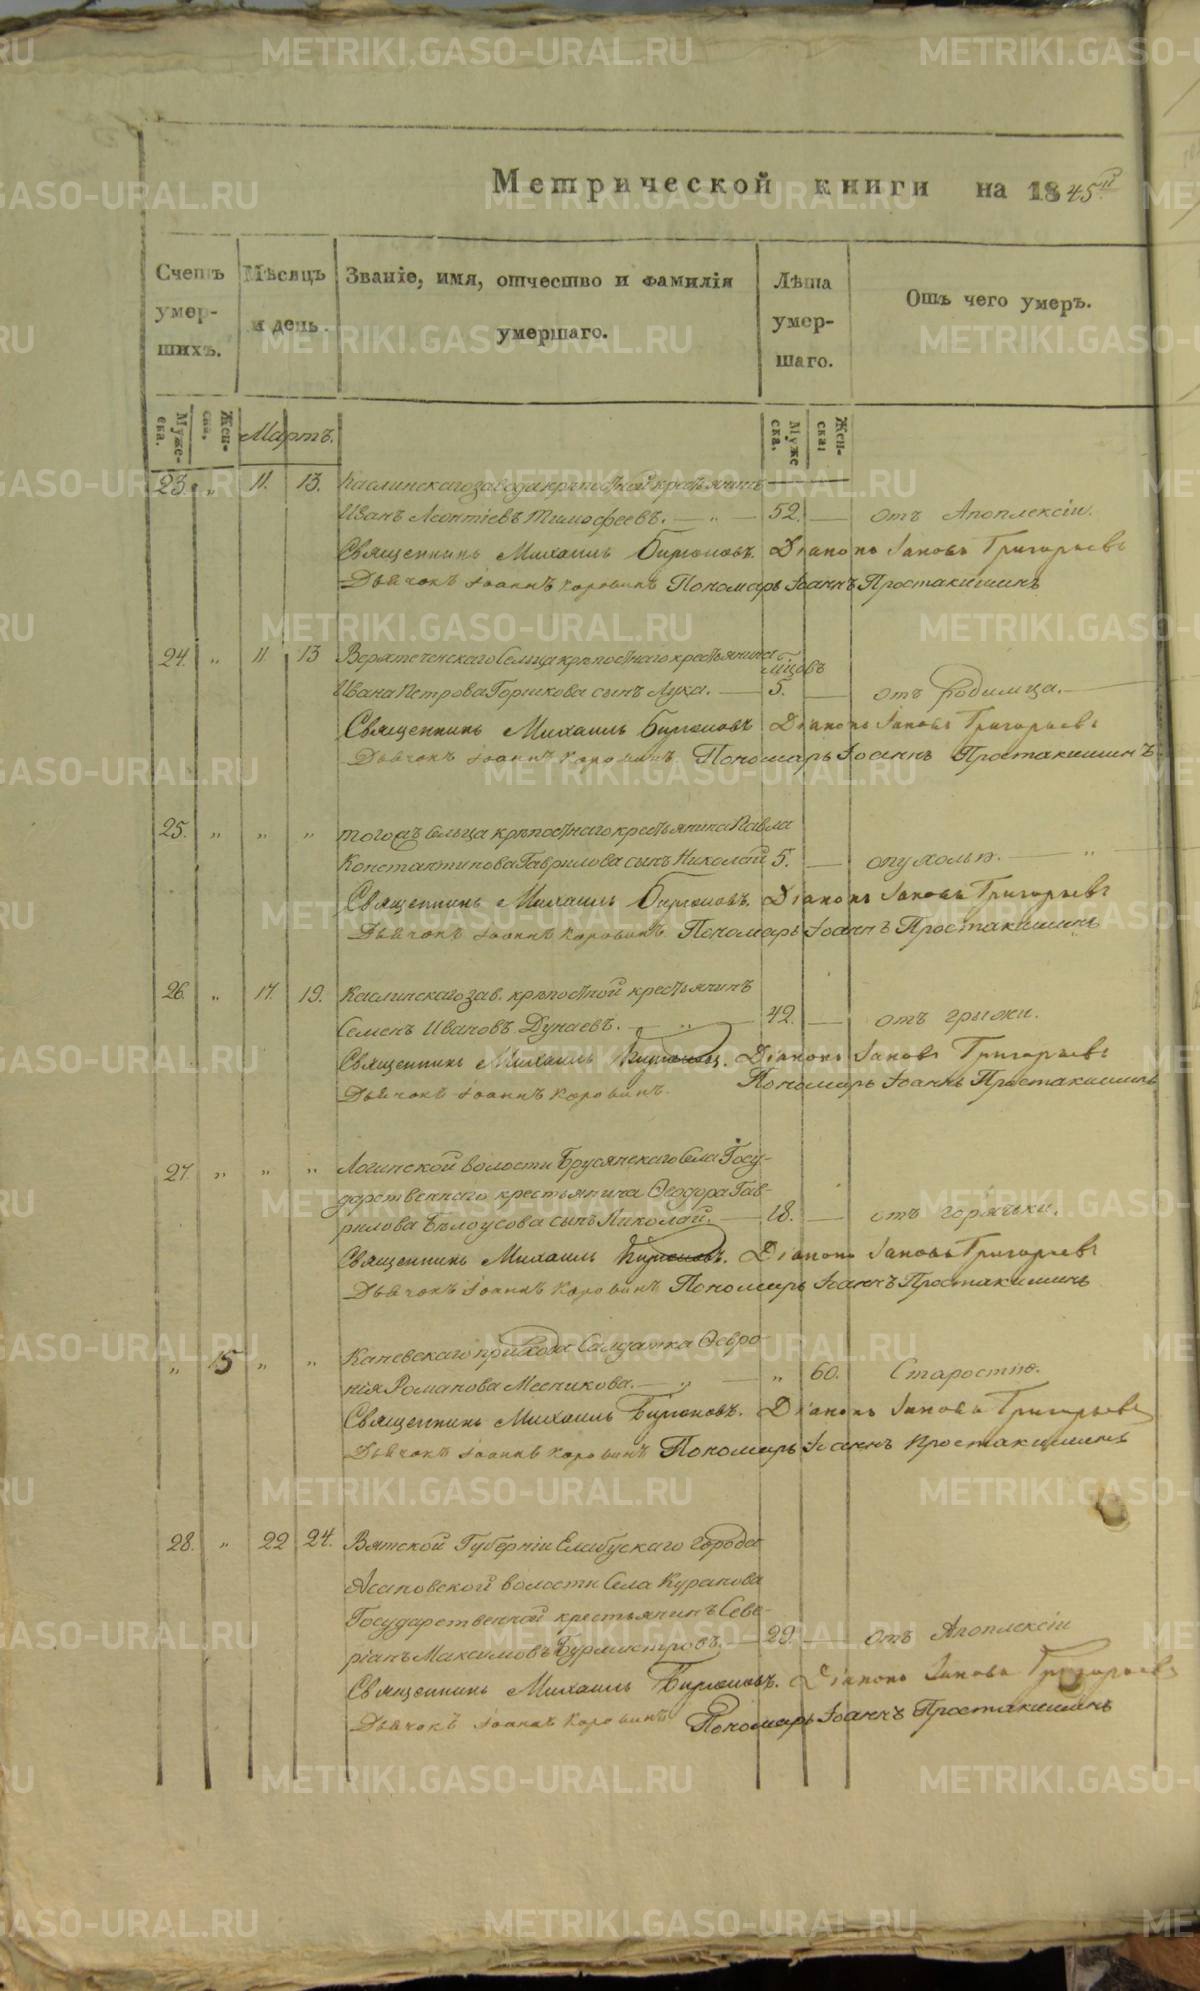 Метрической книги на 1845й
Счетъ умер- шихъ.
Мѣсяцъ и день.
Званіе, имя, отчество и фамилія умершаго.
Лѣта умер- шаго.
Отъ чего умеръ.
Муже- ска. Жен- ска. Мартъ. Муже ска. Жен- ска:
23. „ 11. 13. Каслинскаго завода крѣпостной крестьянинъ
Иванъ Леонтіевъ Тимофеевъ. — „ — 52. — отъ Апоплексіи.
Священникъ Михаилъ Бирюковъ. Діаконъ Іаковъ Григорьевъ
Дьячокъ Іоаннъ Коровинъ Пономарь Іоаннъ Простакишинъ
24. „ 11 13 Верхтеченскаго Сельца крѣпостнаго крестьянина мѣсяцовъ
Ивана Петрова Горшкова сынъ Лука. — 5. — отъ Родимца. —
Священникъ Михаилъ Бирюковъ Діаконъ Іаковъ Григорьевъ
Дьячокъ Іоаннъ Коровинъ. Пономарь Іоаннъ Простакишинъ.
25. „ „ „ того жъ Сельца крѣпостнаго крестьянина Павла
Константинова Гаврилова сынъ Николай 5. — опухолью. — „
Священникъ Михаилъ Бирюковъ. Діаконъ Іаковъ Григорьевъ
Дьячокъ Іоаннъ Коровинъ. Пономарь Іоаннъ Простакишинъ
26. „ 17. 19. Каслинскаго зав. крѣпостной крестьянинъ
Семенъ Ивановъ Дунаевъ. — „ — 42. — отъ грыжи.
Священникъ Михаилъ Бирюковъ. Діаконъ Іаковъ Григорьевъ
Дьячокъ Іоаннъ Коровинъ. Пономарь Іоаннъ Простакишинъ
27. „ „ „ Логинской волости Брусянскаго Села Госу-
дарственнаго крестьянина Ѳеодора Гав-
рилова Бѣлоусова сынъ Николай. — 18. — отъ горячьки.
Священникъ Михаилъ Бирюковъ. Діаконъ Іаковъ Григорьевъ
Дьячокъ Іоаннъ Коровинъ Пономарь Іоаннъ Простакишинъ
„ 15 „ „ Каневскаго прихода Салдатка Ѳевро-
нія Романова Месникова. — „ — „ 60. Старостію.
Священникъ Михаилъ Бирюковъ. Діаконъ Іаковъ Григорьевъ
Дьячокъ Іоаннъ Коровинъ Пономарь Іоаннъ Простакишинъ
28. „ 22 24. Вятской Губерніи Елабускаго Города
Асановской волости Села Куракова
Государственной крестьянинъ Севе-
ріанъ Максимовъ Бурмистровъ. — 29. — отъ Апоплексіи
Священникъ Михаилъ Бирюковъ. Діаконъ Іаковъ Григорьевъ
Дьячокъ Іоаннъ Коровинъ Пономарь Іоаннъ Простакишинъ
METRIKI.GASO-URAL.RU